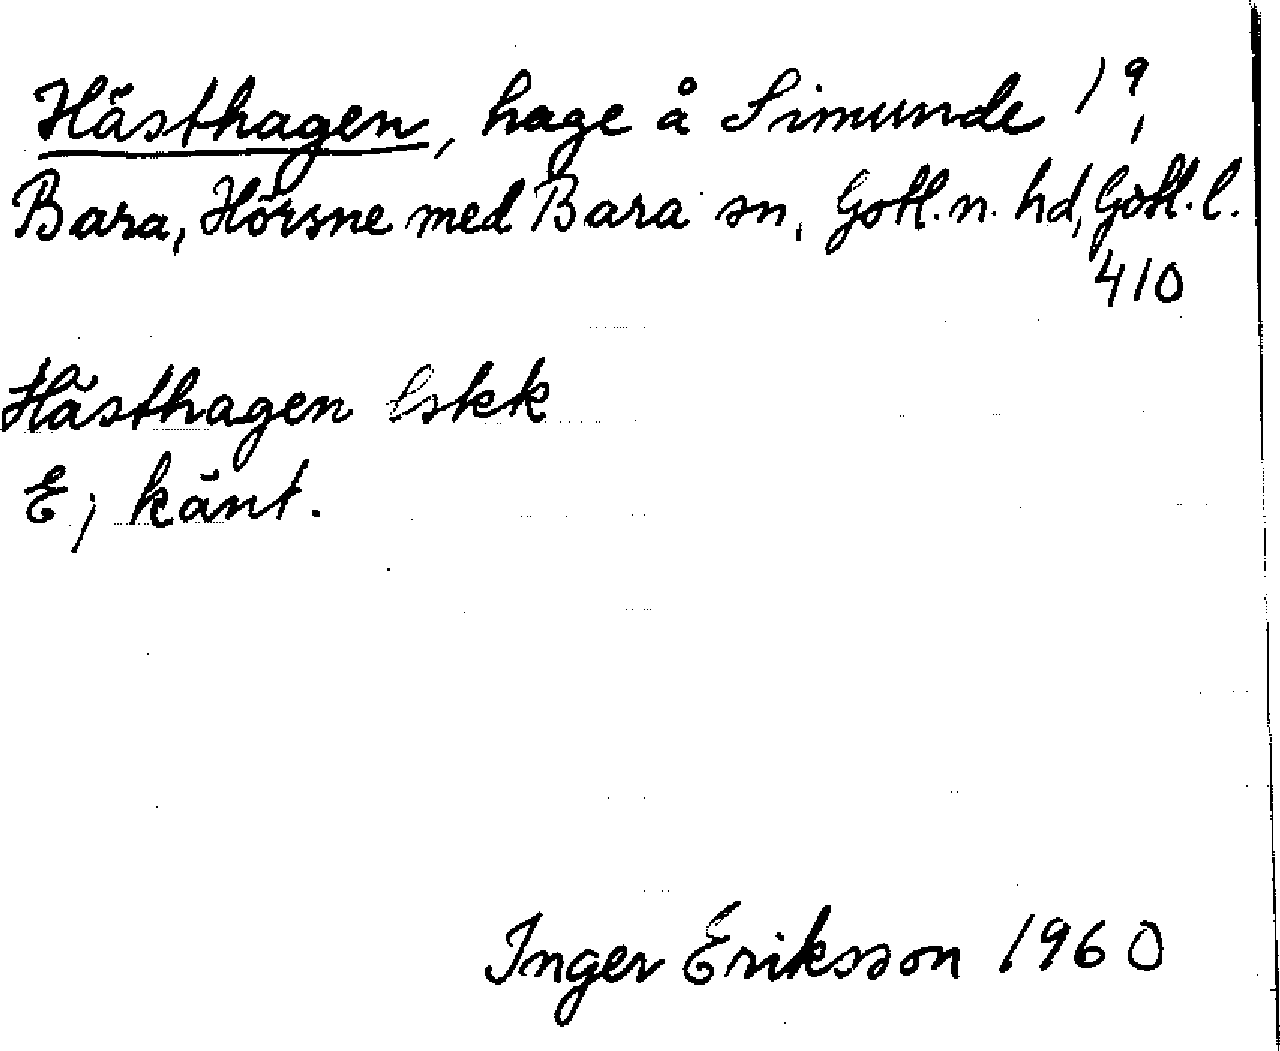 Hästhagen, hage å Simunde 1⁹,
Bara, Hörsne med Bara sn, Gotl. n. hd, Gotl. l.
410
Hästhagen lskk
Ej känt.
Inger Eriksson 1960